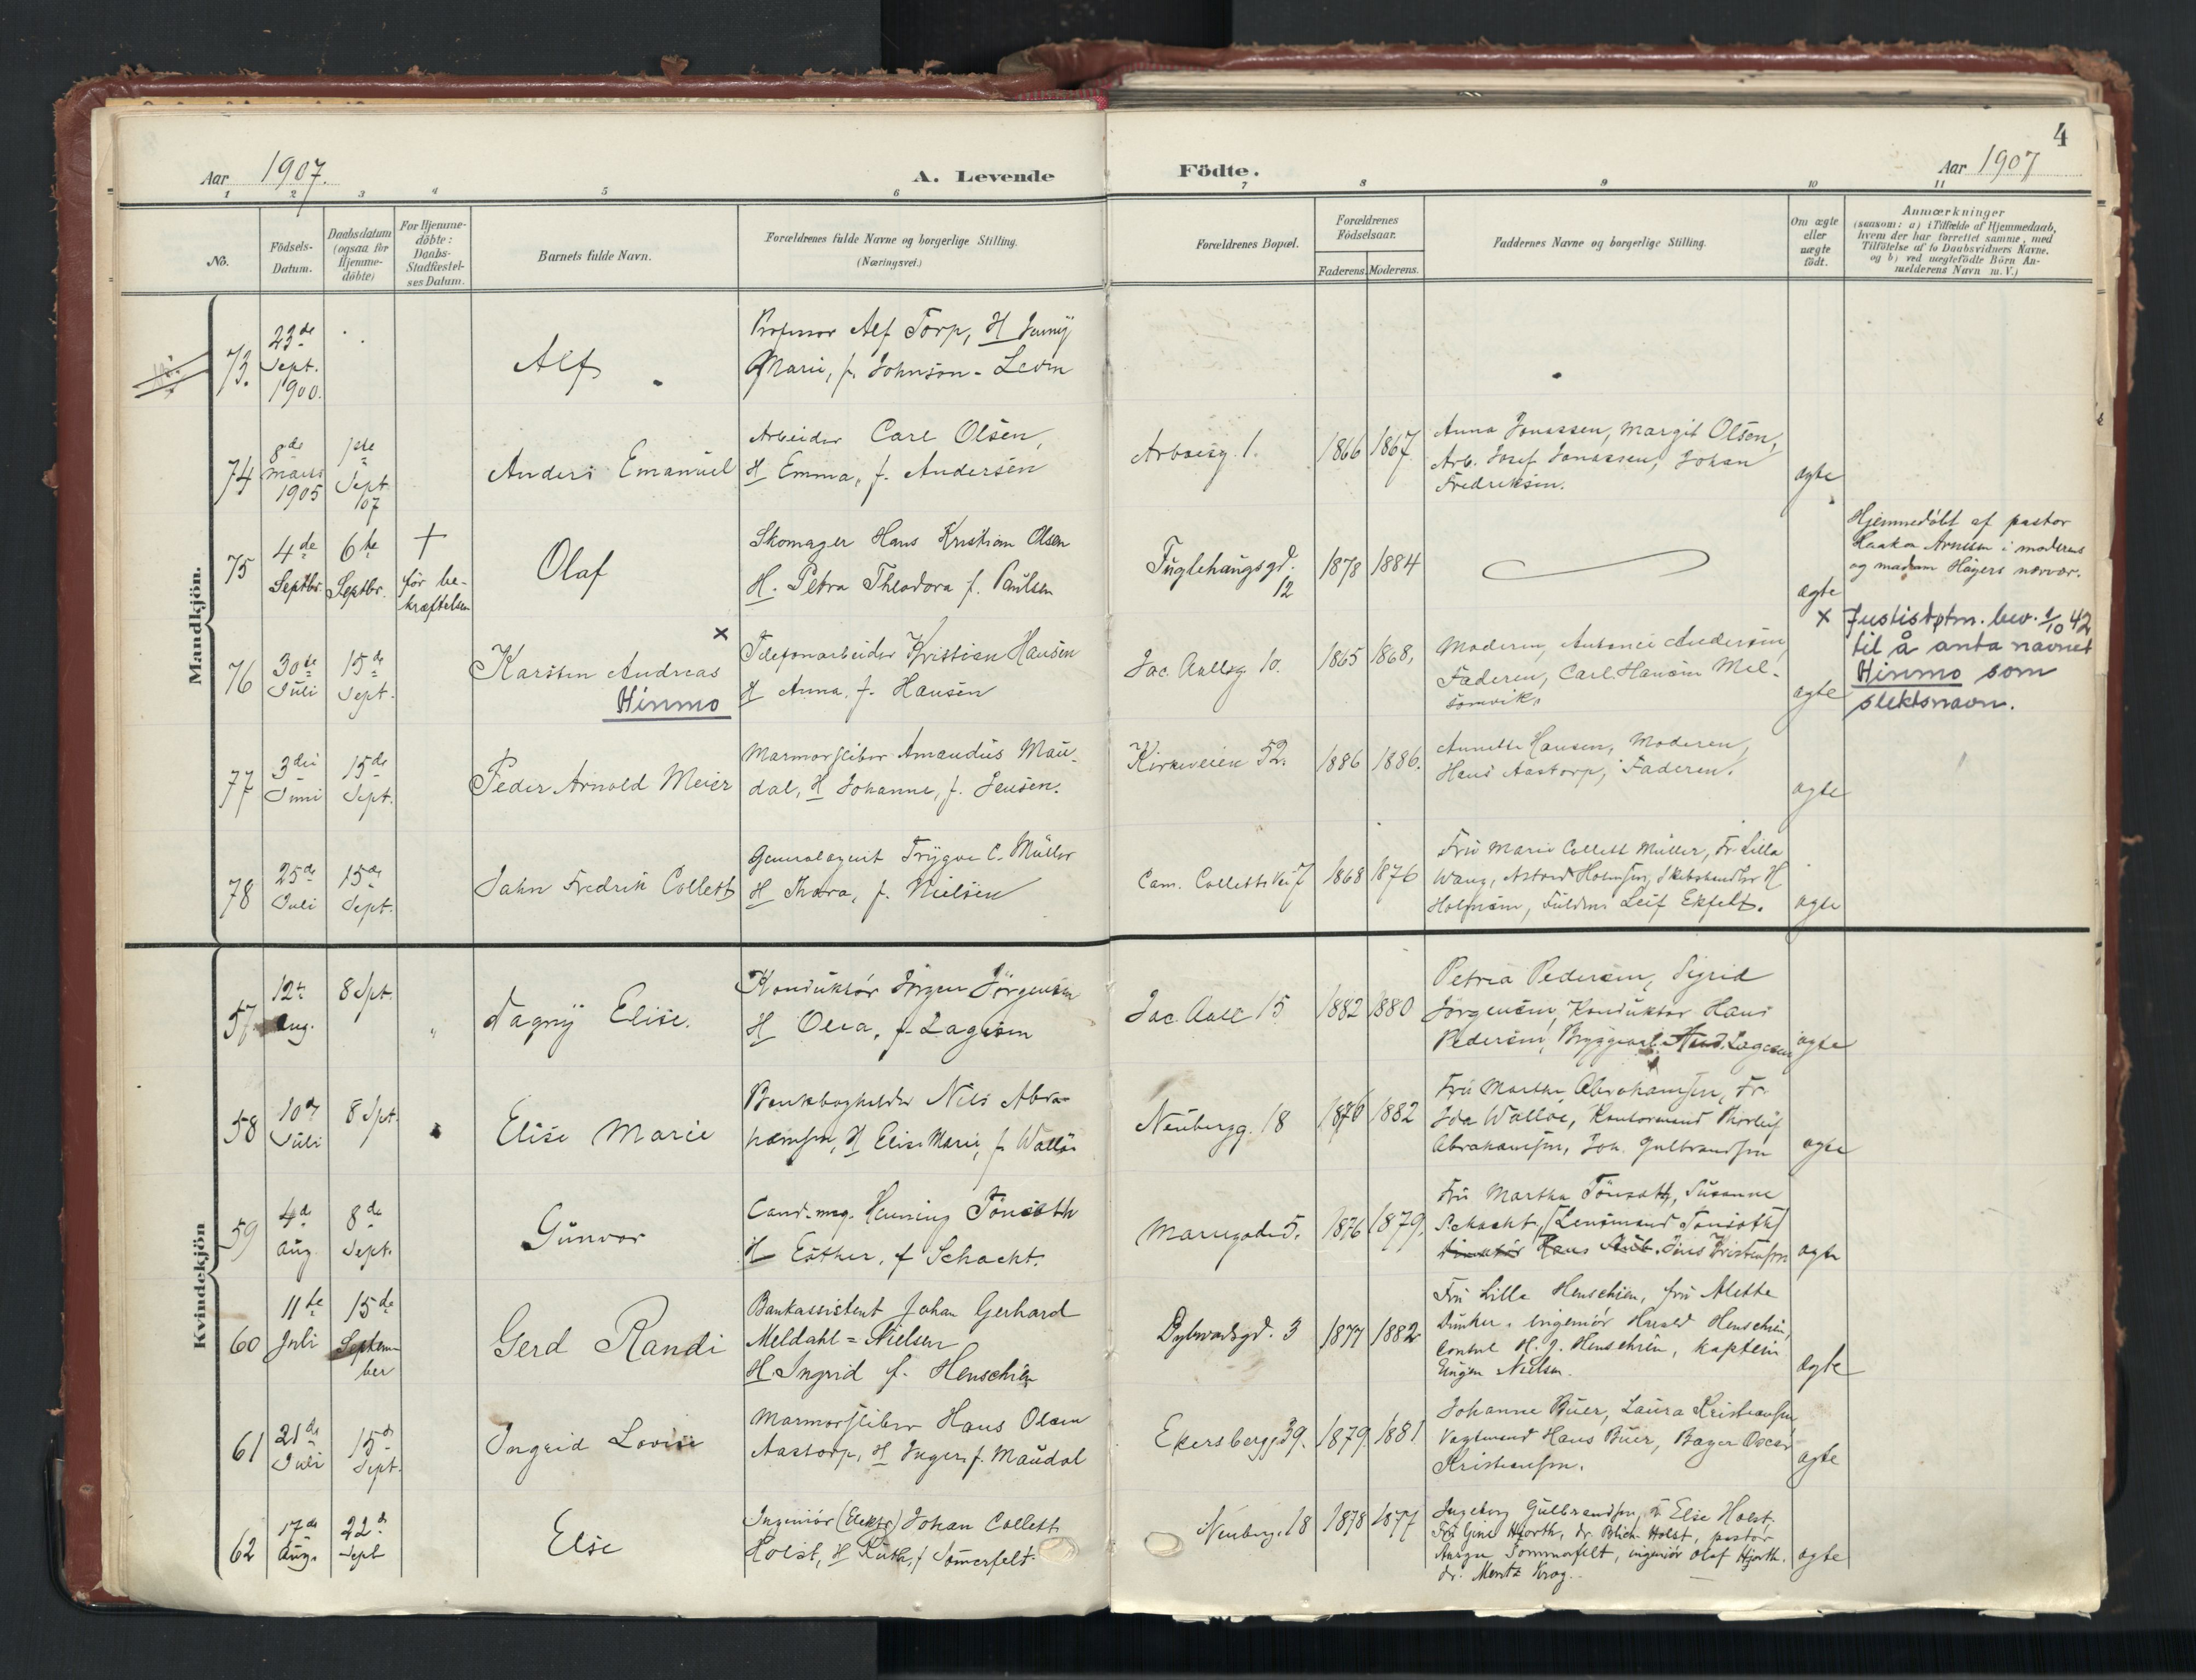 4
Aar 1907.
A. Levende
Födte.
Aar 1907
1 2 3 4 5 6 7 8 9 10 11
No.
Födsels-
Datum.
Daabsdatum
(ogsaa for
Hjemme-
döbte)
For Hjemme-
döbte:
Daabs-
Stadfæstel-
ses Datum.
Barnets fulde Navn.
Forældrenes fulde Navne og borgerlige Stilling.
(Næringsvei.)
Forældrenes Bopæl.
Forældrenes
Födselsaar.
Faderens. Moderens.
Faddernes Navne og borgerlige Stilling.
Om ægte
eller
uægte
födt.
Anmærkninger
(saasom: a) i Tilfælde af Hjemmedaab,
hvem der har forrettet samme, med
Tilföielse af to Daabsvidners Navne,
og b) ved uægtefödte Börn An-
melderens Navn m. V.)
Mandkjön.
73.
23de
Sept.
1900.
Alf
Professor Alf Torp, H Jenny
Marie, f. Johnson-Levin
74
8de
Mars
1905
1ste
Sept.
07
Anders Emanuel
Arbeider Carl Olsen,
H Emma, f. Andersen
Arboesg. 1.
1866
1867
Anna Jonassen, Margit Olsen,
Arb. Josef Jonassen, Johan
Fredriksen.
ægte
75
4de
Septbr.
6te
Septbr.
†
før be-
kræftelsen
Olaf
Skomager Hans Kristian Olsen
H. Petra Theodora f. Paulsen
Fuglehaugsgd.
12
1878
1884
ægte
Hjemmedøbt af pastor
Haakon Arnesen i moderens
og madam Høyers nærvær.
76
30te
Juli
15de
Sept.
Karsten Andreas x
Hinmo
Telefonarbeider Kristian Hansen
H Anna, f. Hansen
Jac. Aallsg 10.
1865
1868.
Moderen, Antonie Andersen,
Faderen, Carl Hansen Mel-
somvik.
ægte
x Justisdptm. bev. 1/10 42
til å anta navnet
Hinmo som
slektsnavn.
77
3die
Juni
15de
Sept.
Peder Arnold Meier
Marmorsliber Amandus Mau-
dal, H Johanne, f. Jensen.
Kirkeveien 52.
1886
1886.
Annette Hansen, Moderen,
Hans Aastorp, Faderen.
ægte
78
25de
Juli
15de
Sept.
Jahn Fredrik Collett
Generalagent Trygve C. Müller
H Thora, f. Nielsen
Cam. Colletts Vei 7
1868
1876
Fru Marie Collett Müller, Fr. Lilla
Wang, Astrid Holmsen, Skibshandler H
Holmsen, Leif Ekfelt.
ægte
Kvindekjön
57
12te
Aug.
8 Spt.
Dagny Elise.
Konduktør Jörgen Jörgensen
H Olea, f. Lagesen
Jac. Aall 15.
1882
1880
Petria Pedersen, Sigrid
Jörgensen, Konduktør Hans
Pedersen, Bryggearb. And. Lagesen
ægte
58
10de
Juli
8 Spt.
Elise Marie
Bankbogholder Nils Abra-
hamsen, H Elise Marie, f. Walløe
Neubergg. 18
1876
1882
Fru Marthe Abrahamsen, Fr.
Ida Walløe, Kontormand Thorleif
Abrahamsen, Joh. Gulbrandsen
ægte
59
4de
Aug.
8de
Sept.
Gunvor
Cand. mag. Henning Tönseth
H Esther, f Schacht.
Mariegade 5.
1876
1879.
Fru Martha Tönseth, Susanne
Schacht, [Lensmand Tönseth]
Hans Jens Kristensen
ægte
60
11te
Juli
15de
Septem-
ber
Gerd Randi
Bankassistent Johan Gerhard
Meldahl = Nielsen
H. Ingrid f. Henschien
Dybwadsgd. 3
1877
1882
Fru Lilla Henschien, fru Alette
Dunker, ingeniør Harald Henschien,
H. J. Henschien, kaptein
Eugen Nielsen.
ægte
61
21de
Juli
15de
Sept.
Ingrid Lovise
Marmorsliber Hans Olsen
Aastorp, H Inger, f. Maudal
Ekersbergg. 39.
1879
1881.
Johanne Buer, Laura Kristiansen
Vagtmand Hans Buer, Bager Oscar
Kristiansen.
ægte
62
17de
Aug.
22de
Sept
Else
Ingeniør (Elektr) Johan Collett
Holst, H Ruth, f Sömerfelt
Neubergg. 18
1878
1877
Ingeborg Gulbrandsen, Fr Else Holst.
Fru Gina Hjorth, dr. Blich Holst, pastor
Aage Sommerfelt, ingeniør Olaf Hjorth.
dr. Mentz Krog.
ægte